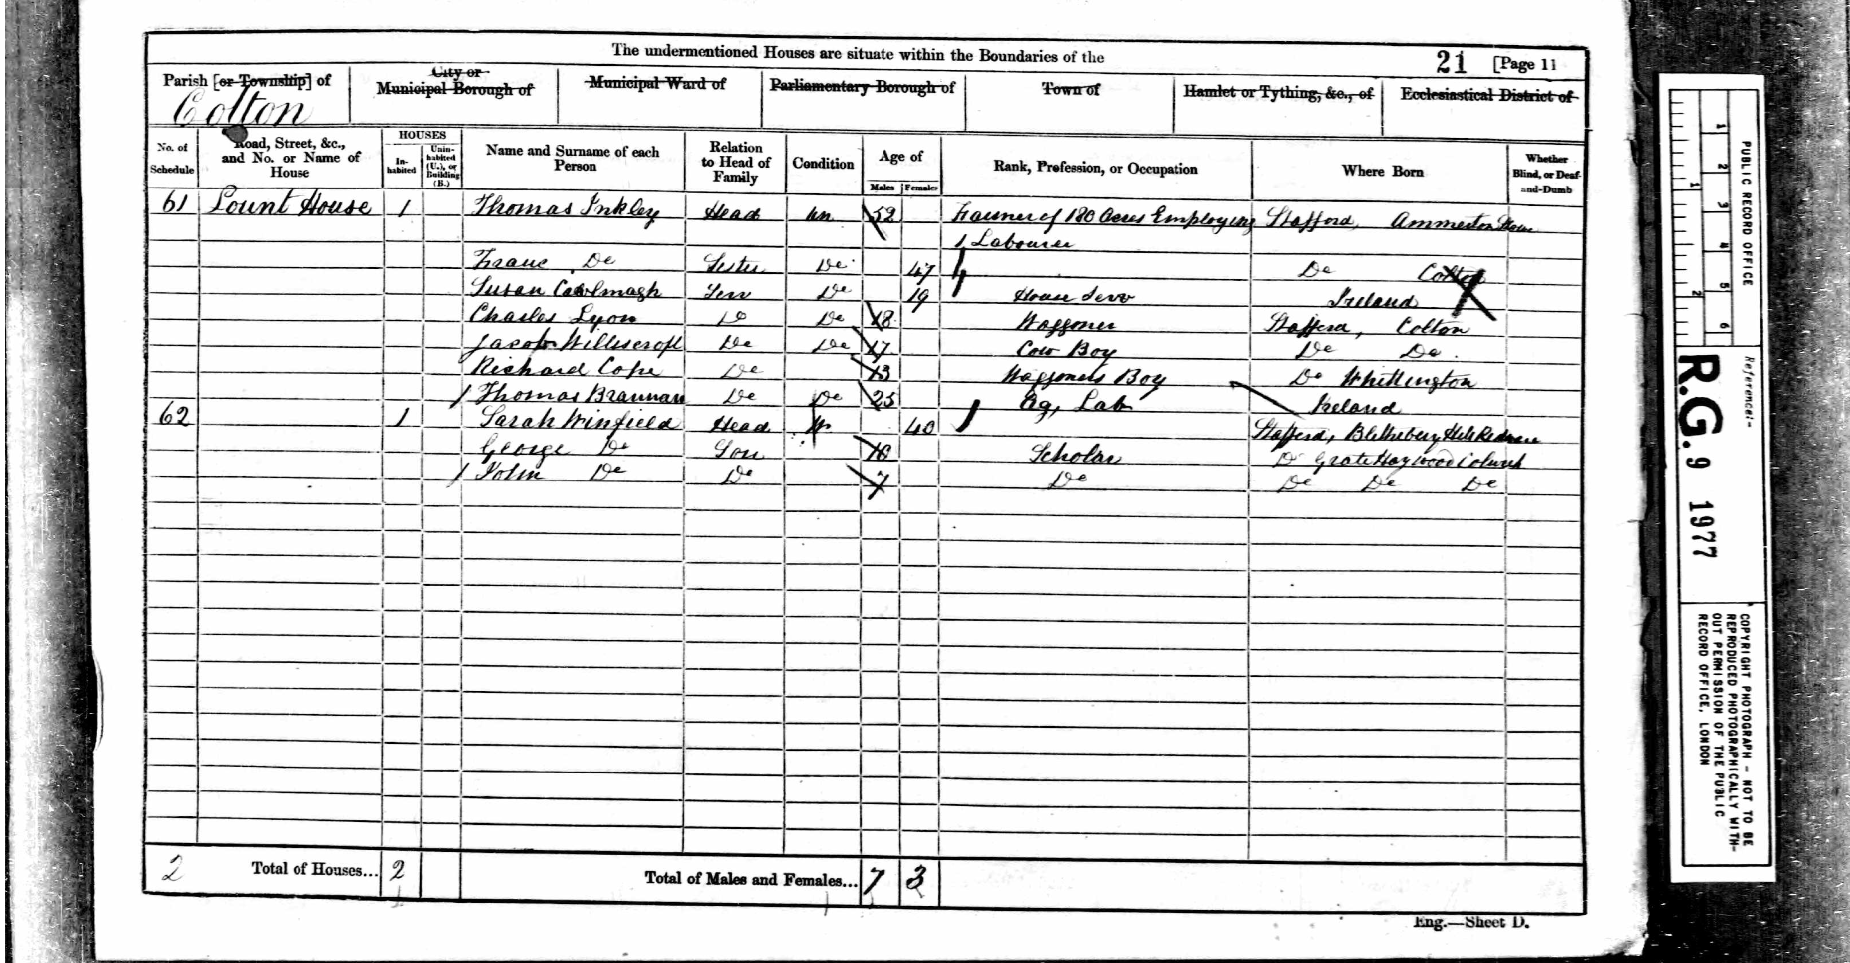 The undermentioned Houses are situate within the Boundaries of the
21 [Page 11
Parish [or Township] of
Colton
City or Municipal Borough of
Municipal Ward of
Parliamentary Borough of
Town of
Hamlet or Tything, &c., of
Ecclesiastical District of
No. of Schedule
Road, Street, &c., and No. or Name of House
HOUSES
In-habited
Unin-habited (U.), or Building (B.)
Name and Surname of each Person
Relation to Head of Family
Condition
Age of
Males
Females
Rank, Profession, or Occupation
Where Born
Whether Blind, or Deaf-and-Dumb
61 Lount House 1 Thomas Inkley Head Un 52 Farmer of 180 Acres Employing Stafford,
1 Labourer
Do Sister Do 47 Do Colton
Susan Serv Do 19 House Serv Ireland
Charles Lyon Do Do 18 Waggoner Stafford, Colton
Jacob Do Do 17 Cow Boy Do Do.
Richard Cope Do 13 Waggoners Boy Do Whittington
Thomas Brannan Do Do 25 Ag, Lab Ireland
62 1 Sarah Winfield Head W. 40 Stafford,
George Do Son Scholar Do Haywood
John Do Do 7 Do Do Do Do
2 Total of Houses... 2
Total of Males and Females... 7 3
Eng.—Sheet D.
PUBLIC RECORD OFFICE
1 2 3 4 5 6
1 2
Reference:-
R.G. 9 1977
COPYRIGHT PHOTOGRAPH - NOT TO BE
REPRODUCED PHOTOGRAPHICALLY WITH-
OUT PERMISSION OF THE PUBLIC
RECORD OFFICE, LONDON